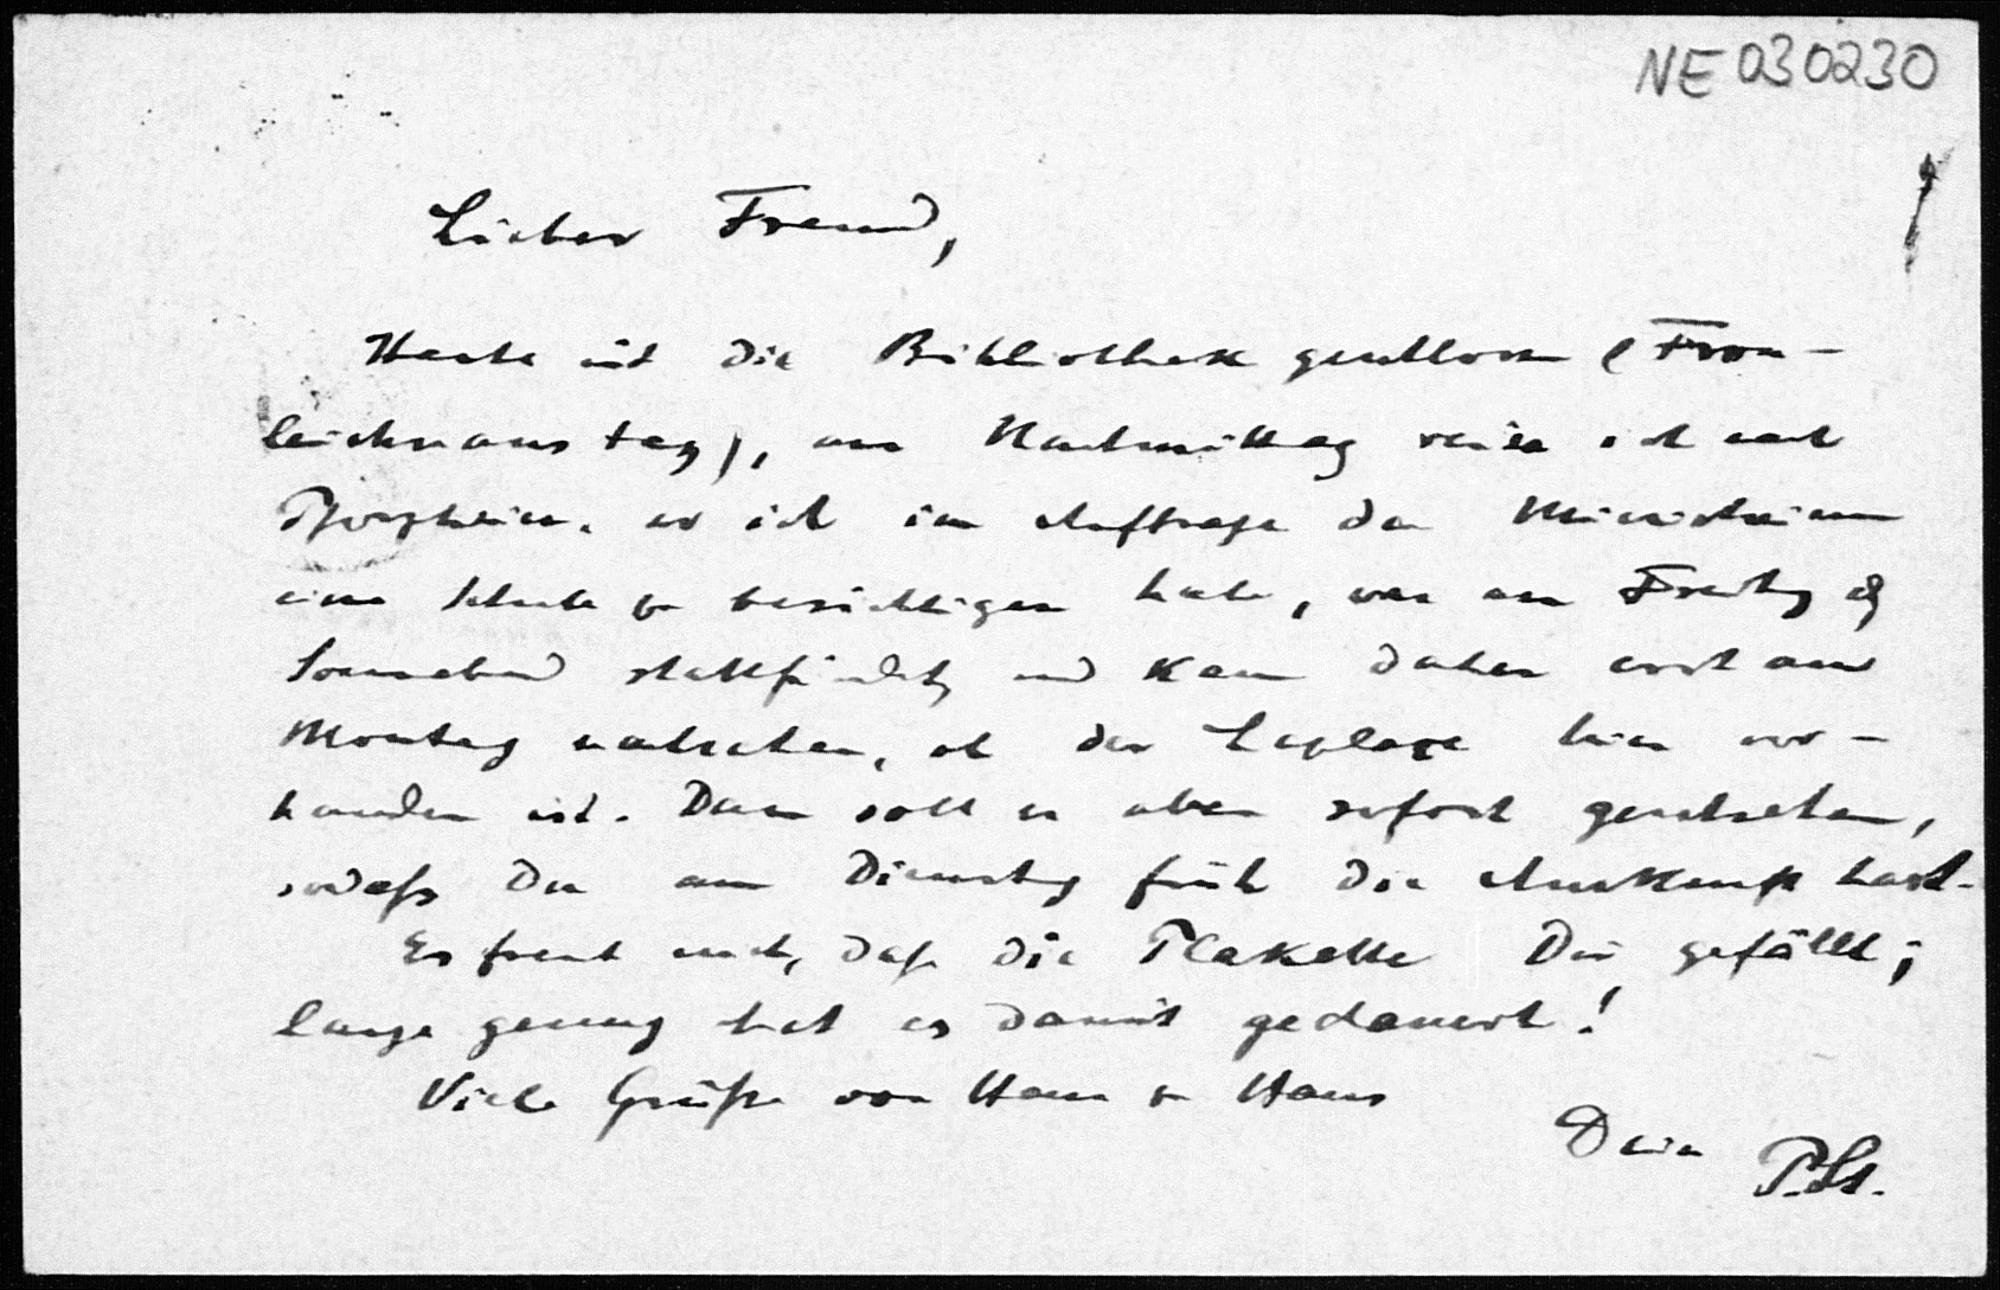 NE 030230
Lieber Freund,
Heute ist die Bibliothek geschlossen (Fron-
leichnamstag), am Nachmittag reise ich nach
Pforzheim, wo ich im Auftrage des Ministeriums
eine Schule zu besichtigen habe, was am Freitag &
Sonnabend stattfindet, und kann daher erst am
Montag nachsehen, ob der Laplace hier vor-
handen ist. Dann soll es aber sofort geschehen,
sodaß Du am Dienstag früh die Auskunft hast.
Es freut mich, daß die Plakette Dir gefällt;
lange genug hat es damit gedauert!
Viele Grüße von Haus zu Haus
Dein P. St.